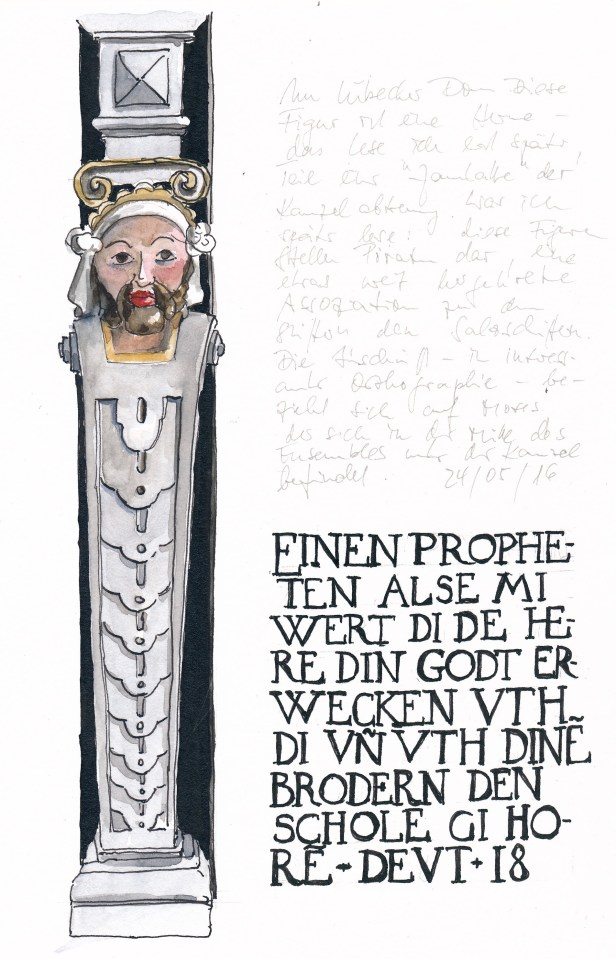 Im Lübecker Dom Diese
Figur ist eine Herme –
das lese ich erst später,
der
Kanzel Was ich
später lese: diese Figuren
stellen Piraten dar eine
etwas weit hergeholte
Assoziation zu den
Stiftern den
Die Inschrift – in interess-
anter Orthographie – be-
zieht sich auf Moses
der sich in der Mitte des
Ensembles unter der Kanzel
befindet. 24/05/16
EINEN PROPHE-
TEN ALSE MI
WERT DI DE HE-
RE DIN GODT ER-
WECKEN VTH
DI VÑ VTH DINẼ
BRODERN DEN
SCHOLE GI HO-
RẼ + DEVT + 18